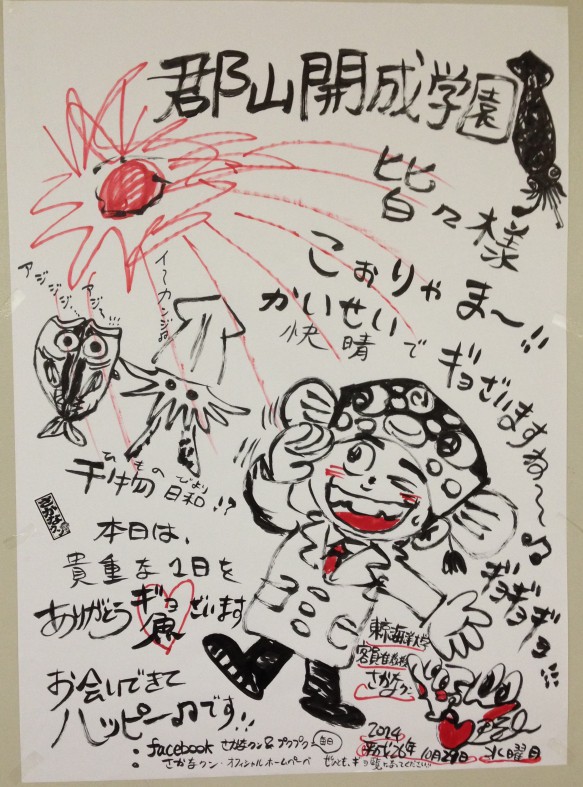 郡山開成学園
皆々様
こおりゃま〜!!
かいせいで
快晴
ギョざいますね〜♪
アジジジ…
アジ〜…
イーカンジね
ひもの びより
干物日和!?
本日は、
貴重な1日を
ありがとうギョざいます
お会いできて
ハッピー♫です!!
ギョギョギョッ
東京海洋大学
客員准教授
さかなクン
2014
平成26年 10月29日 水曜日
: facebook さかなクン&プクプク 毎日
: さかなクン・オフィシャルホームページ ぜひとも、ギョ覧になってください!!